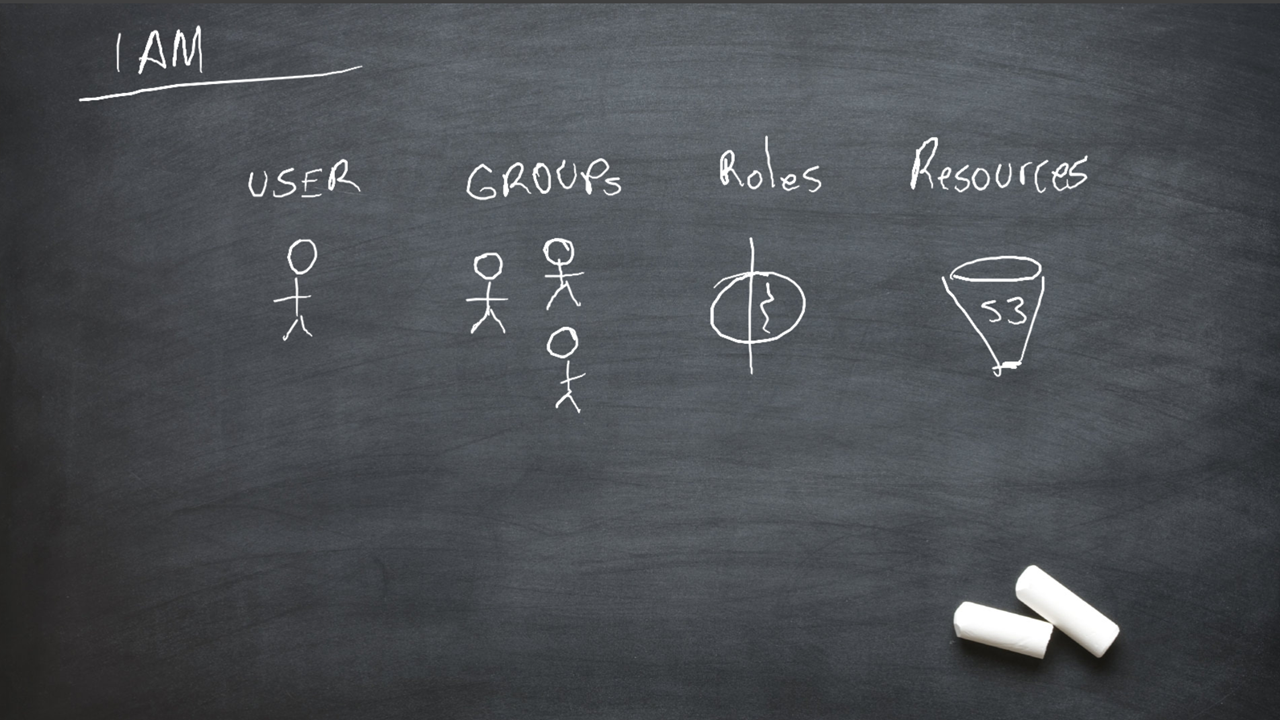 IAM
USER GROUPs Roles Resources
S3